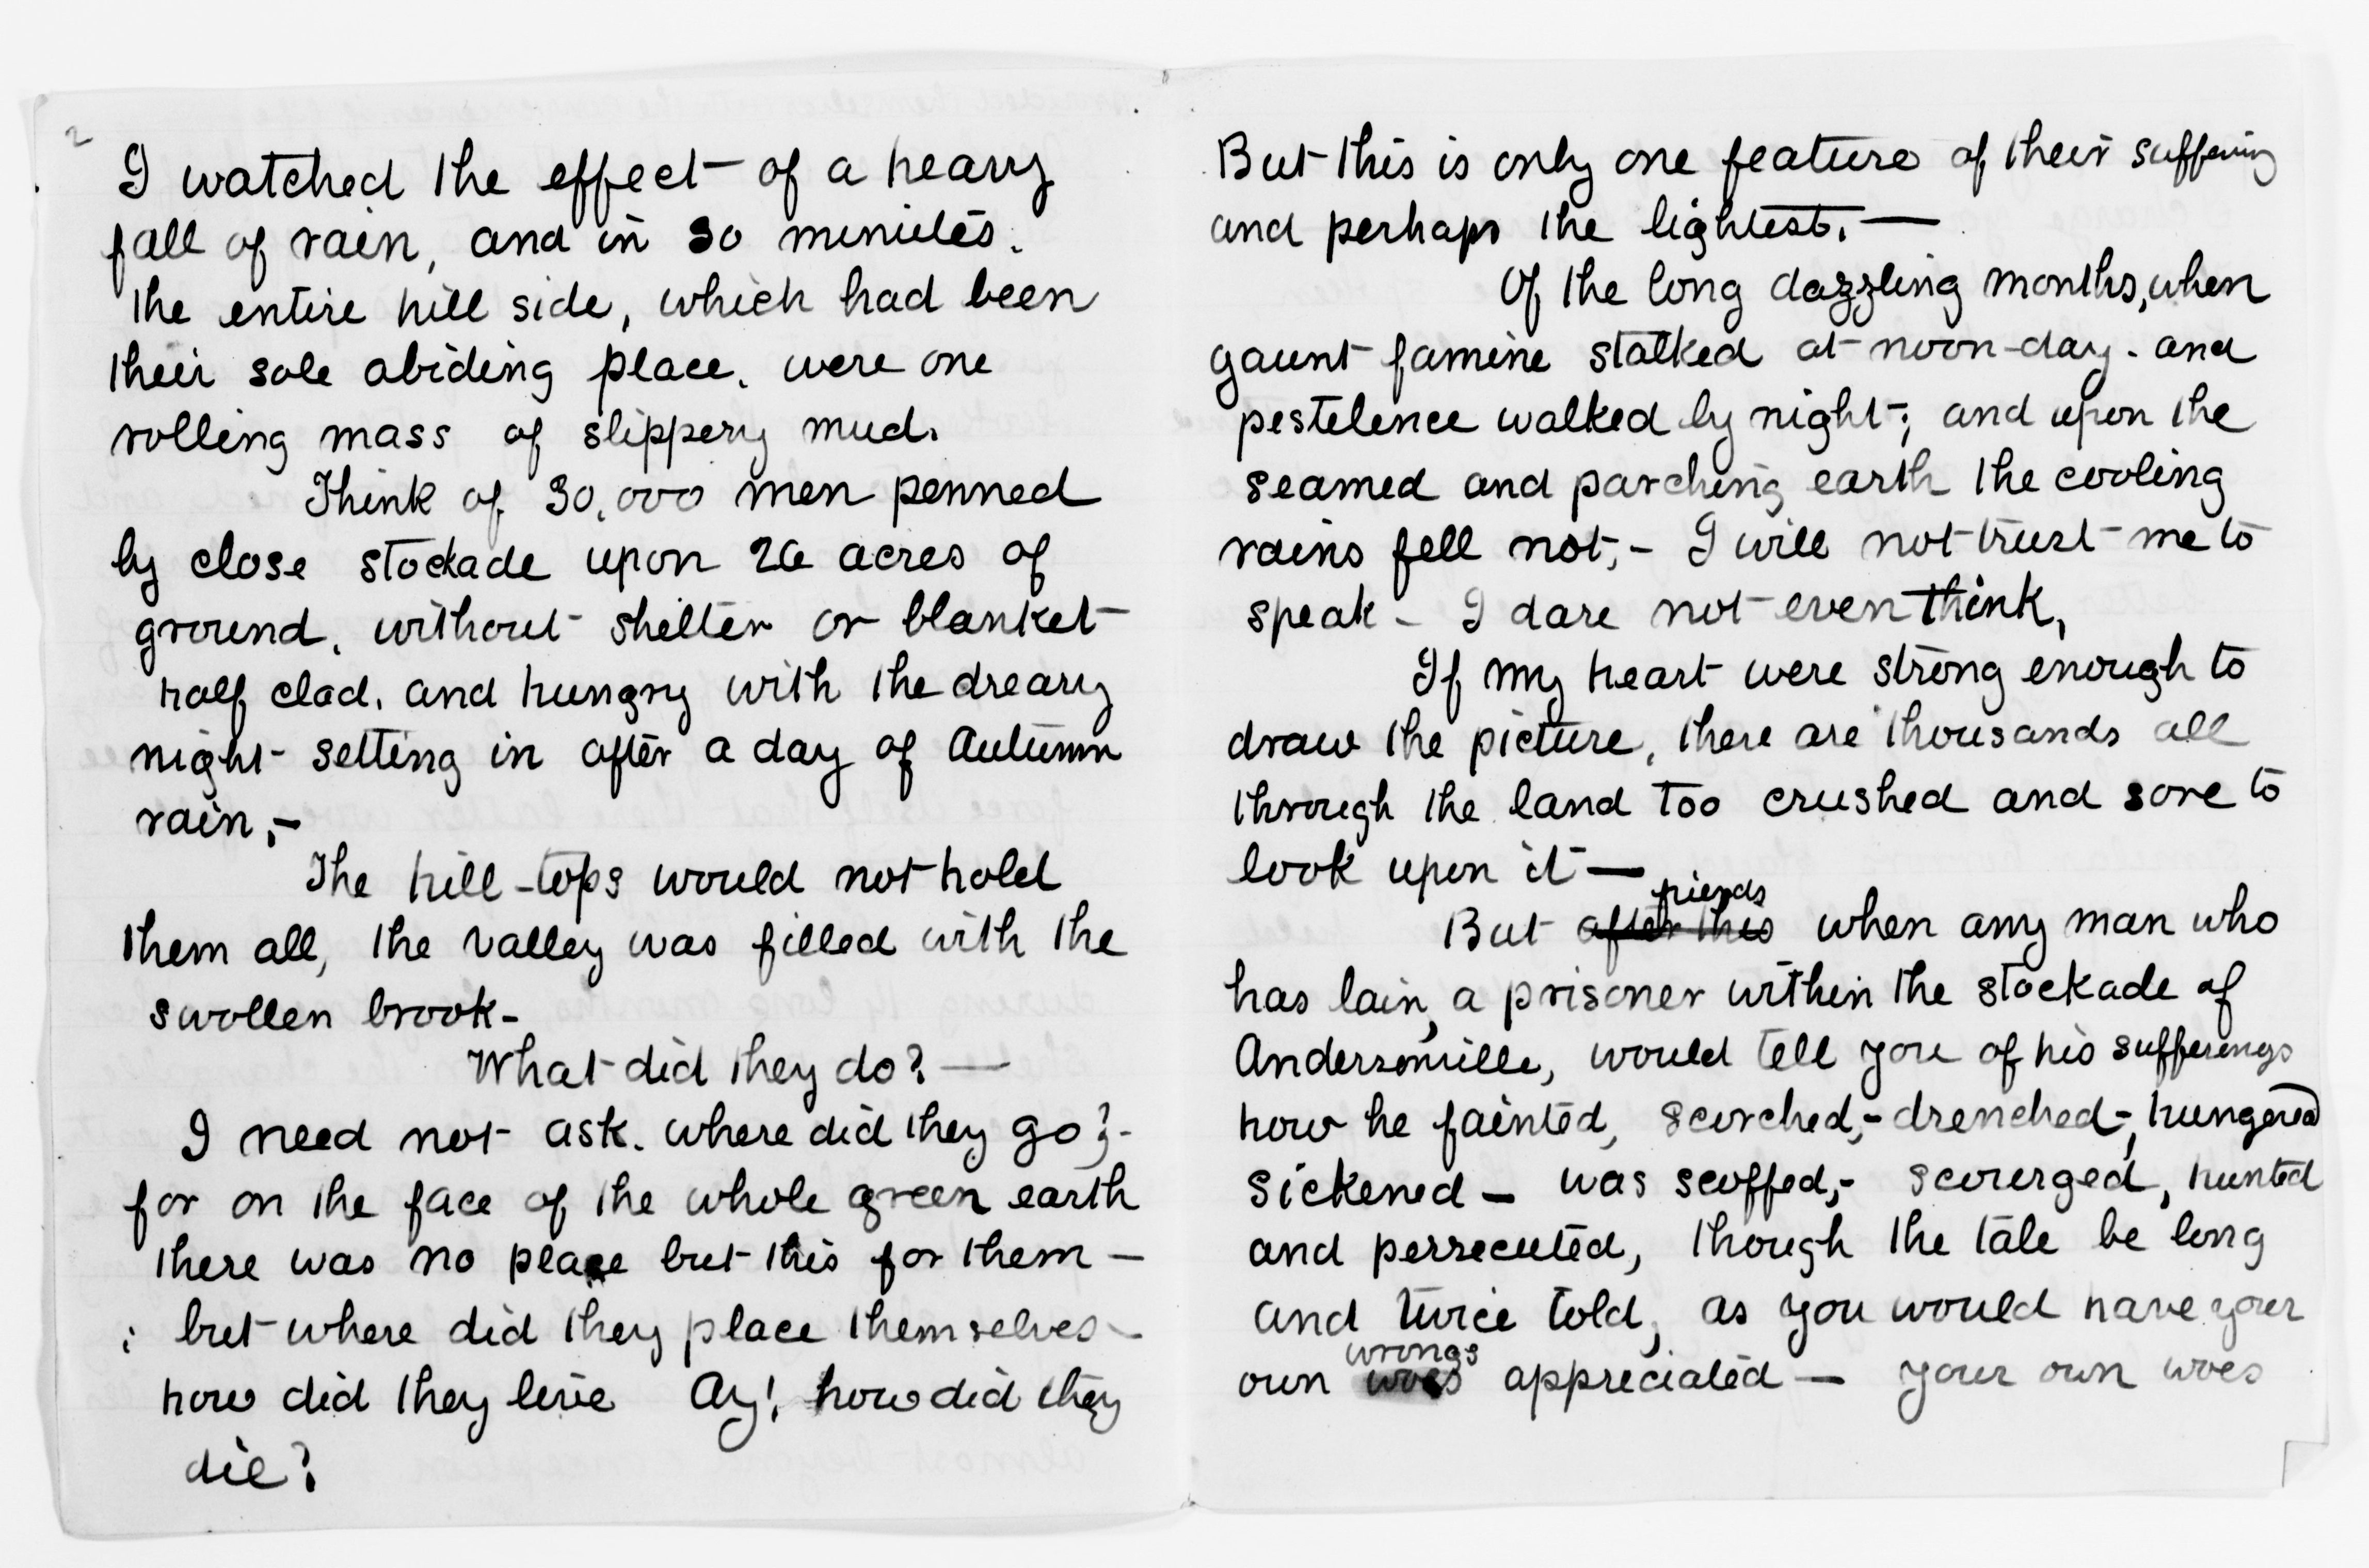 2
I watched the effect of a heavy
fall of rain, and in 30 minutes.
the entire hill side, which had been
their sole abiding place. were one
rolling mass of slippery mud.
Think of 30,000 men penned
by close stockade upon 26 acres of
ground. without shelter or blanket
half clad. and hungry with the dreary
night setting in after a day of Autumn
rain,-
The hill-tops would not hold
them all, the valley was filled with the
swollen brook-
What did they do? —
I need not ask. where did they go?-
for on the face of the whole green earth
there was no place but this for them —
: but where did they place themselves-
how did they live Ay! how did they
die?
But this is only one feature of their suffering
and perhaps the lightest. —
Of the long dazzling months, when
gaunt famine stalked at noon-day. and
pestelence walked by night; and upon the
seamed and parching earth the cooling
rains fell not;- I will not trust me to
speak - I dare not even think,
If my heart were strong enough to
draw the picture, there are thousands all
through the land too crushed and sore to
look upon it —
friends
But after this when any man who
has lain, a prisoner within the stockade of
Andersonville, would tell you of his sufferings
how he fainted, scorched,- drenched-, hungered
sickened — was scoffed,- scourged, hunted
and persecuted, though the tale be long
and twice told, as you would have your
wrongs
own woes appreciated — your own woes